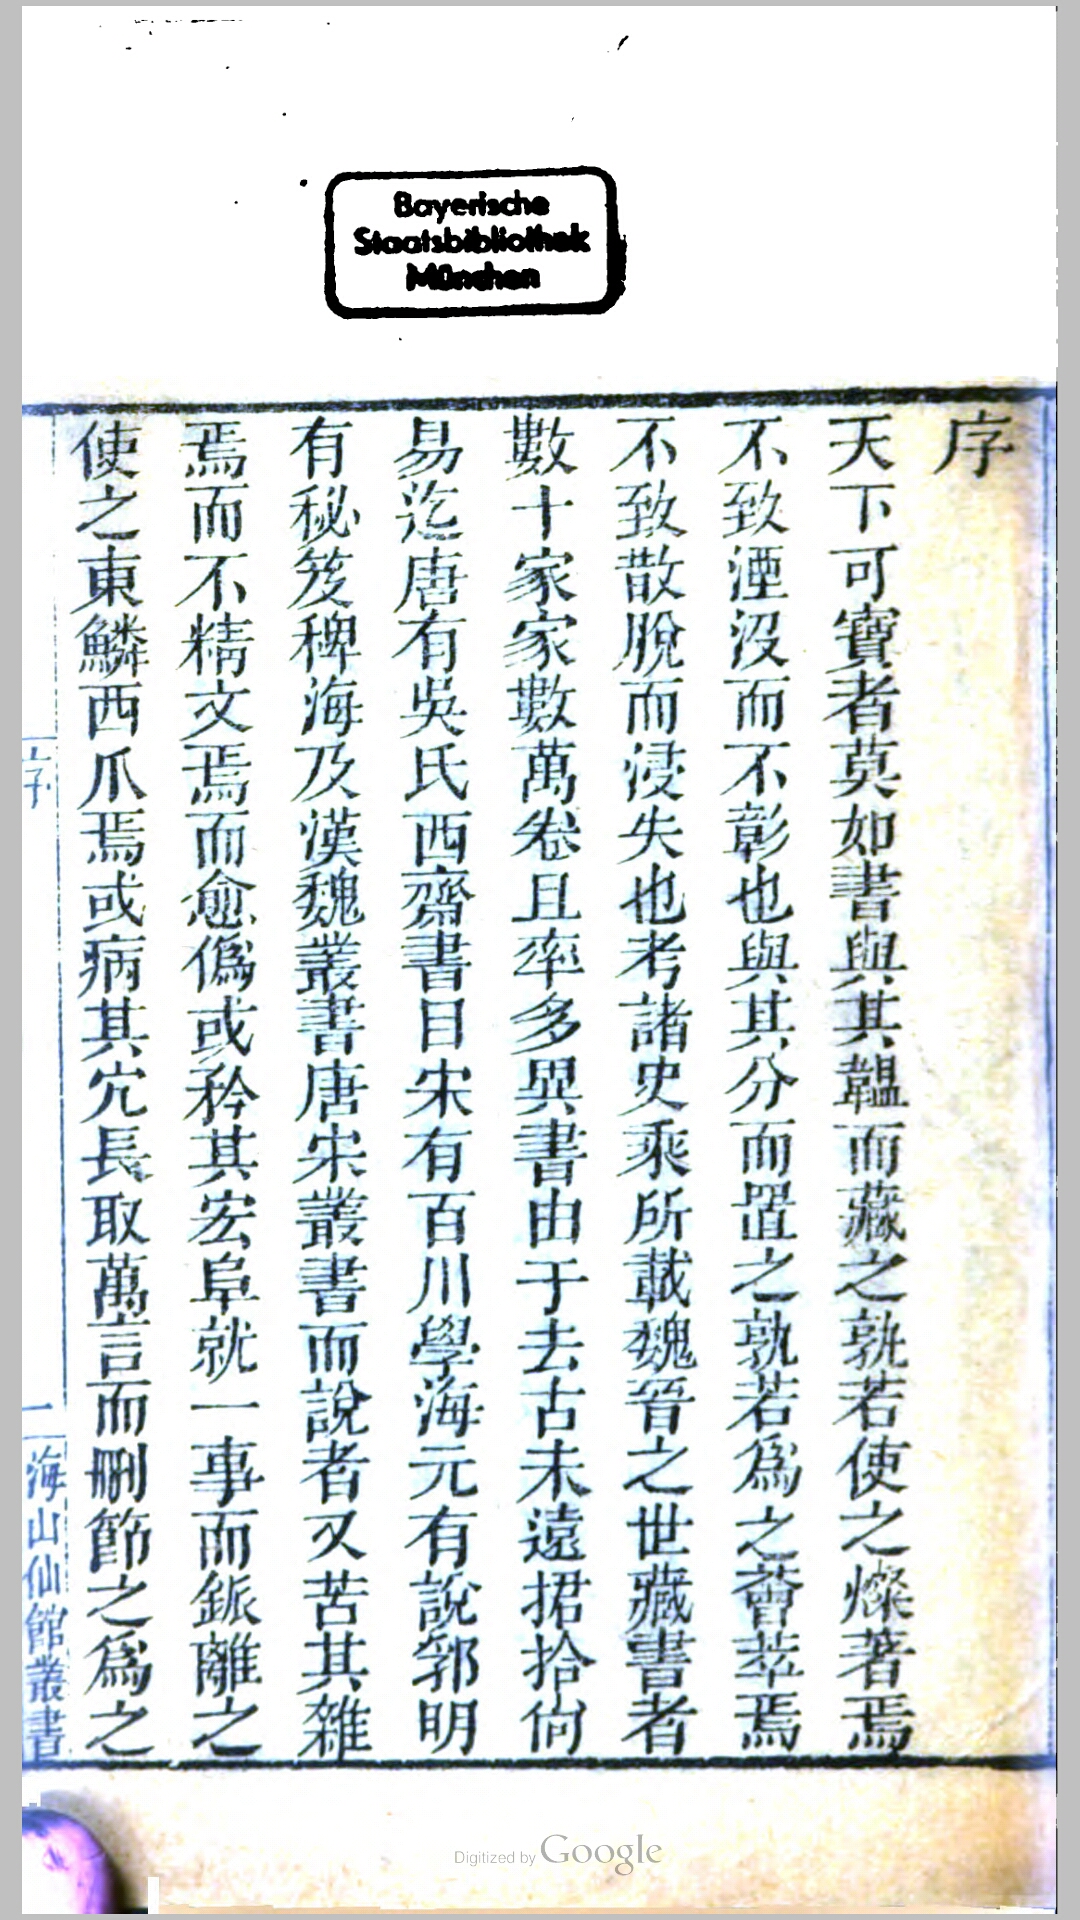 Bayerische
Staatsbibliothek
München
序
天下可寶者莫如書與其韞而藏之孰若使之燦著焉
不致湮沒而不彰也與其分而置之孰若爲之薈萃焉
不致散脫而浸失也考諸史乘所載魏晉之世藏書者
數十家家數萬卷且率多異書由于去古未遠捃拾尙
易迄唐有吳氏西齋書目宋有百川學海元有說郛明
有秘笈稗海及漢魏叢書唐宋叢書而說者又苦其雜
焉而不精文焉而愈僞或矜其宏阜就一事而鈲離之
使之東鱗西爪焉或病其冗長取萬言而刪節之爲之
序
一
海山仙館叢書
Digitized by Google